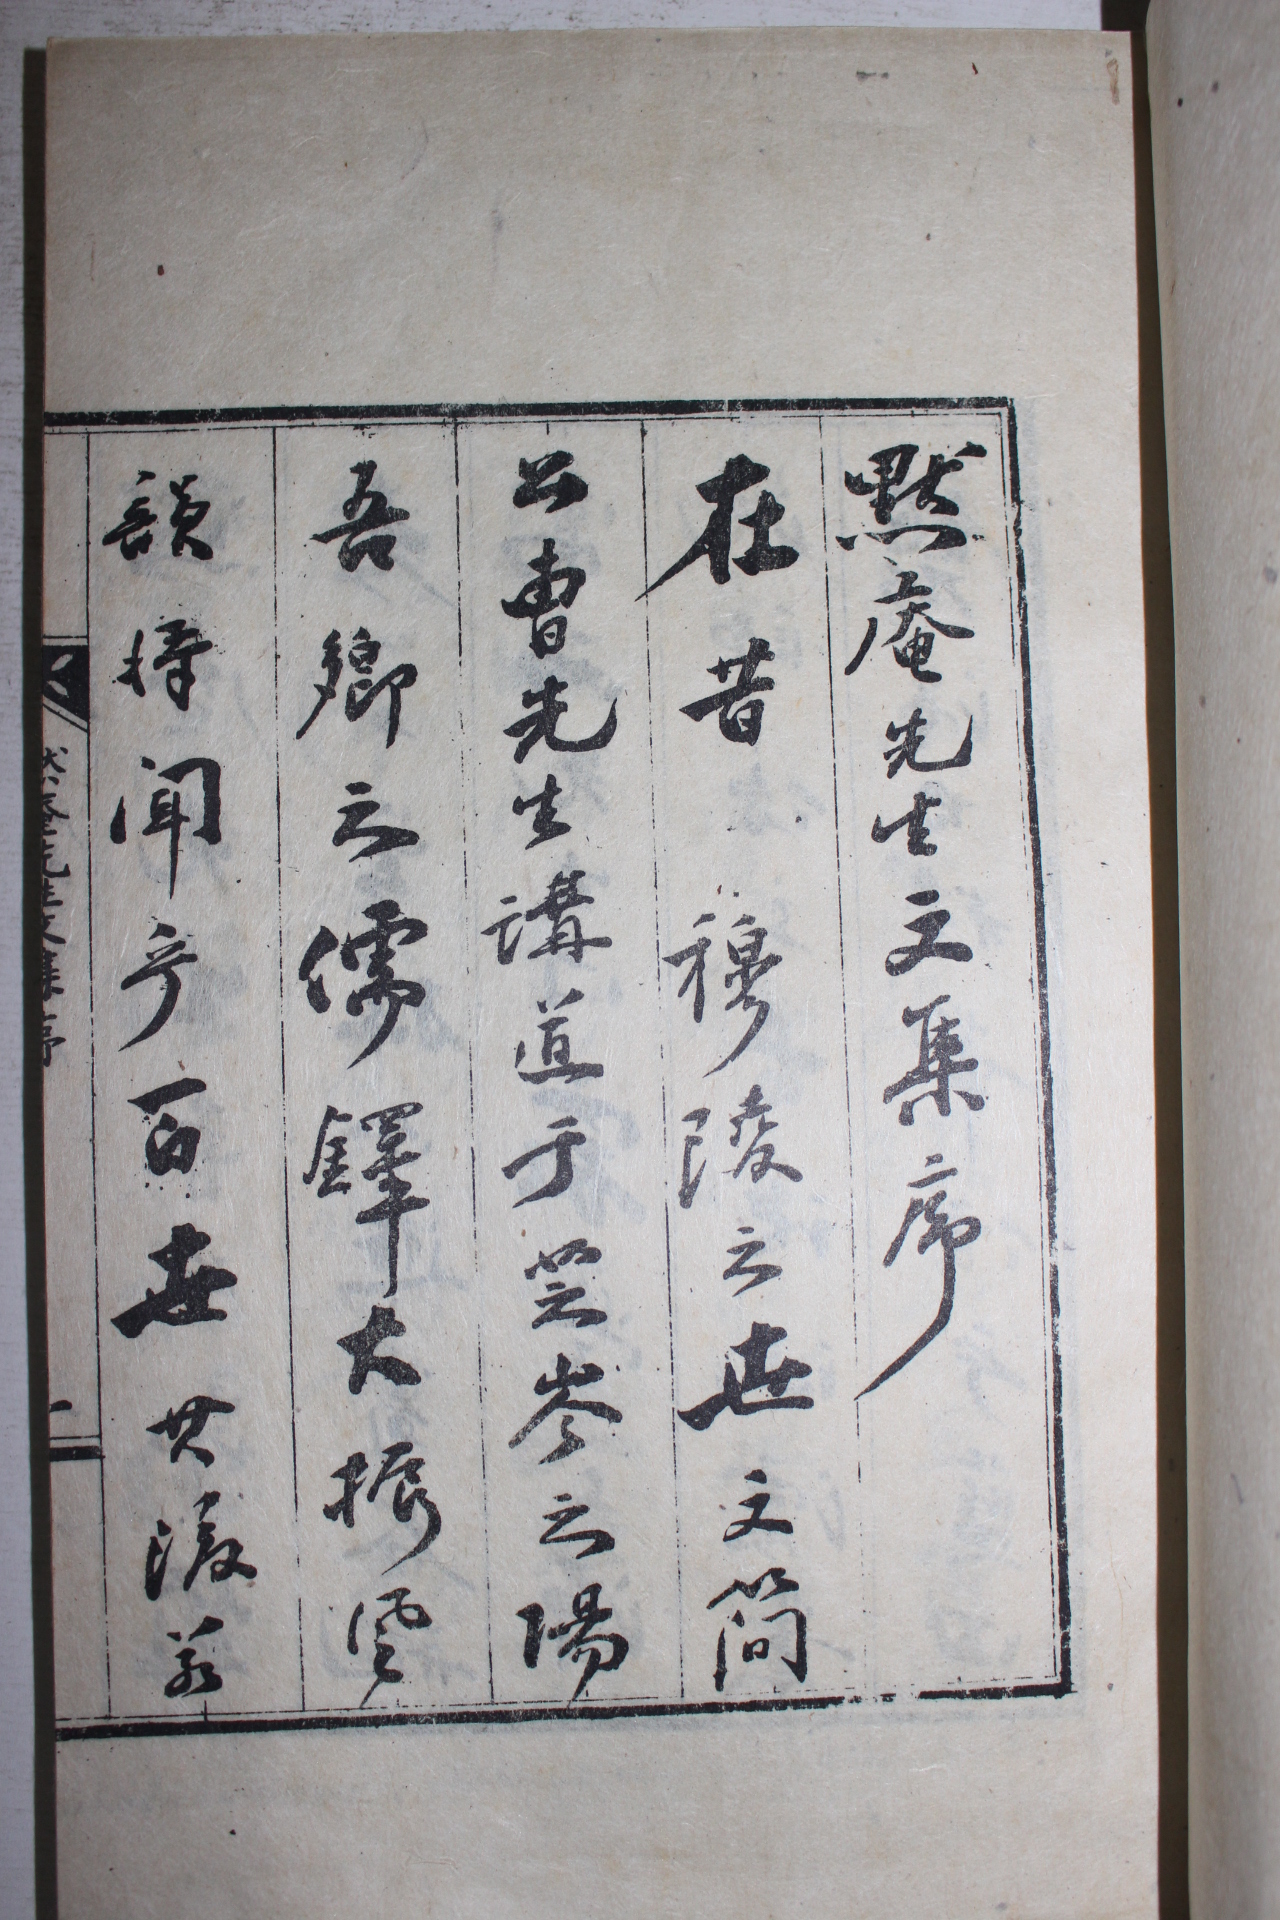 默庵先生文集序
在昔 穆陵之世文簡
公曹先生講道于芝岑之陽
吾鄉之儒鐸大振風
韻埓聞乎百世其後若
默庵先生文集序
一